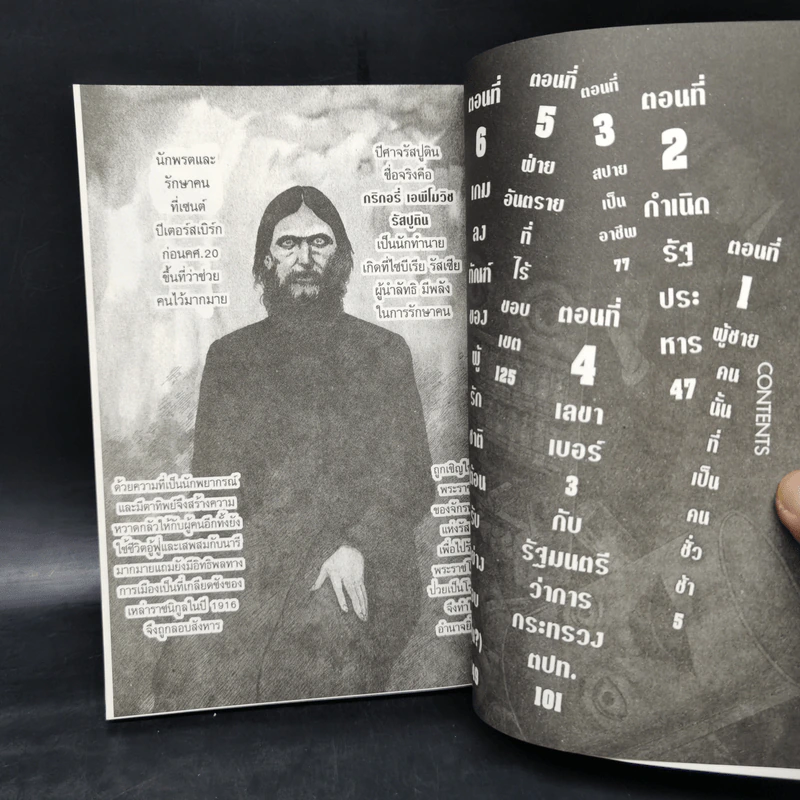 นักพรตและ
รักษาคน
ที่เซนต์
ปีเตอร์สเบิร์ก
ก่อนคศ.20
ขึ้นที่ว่าช่วย
คนไว้มากมาย
ปีศาจรัสปูติน
ชื่อจริงคือ
กริกอรี่ เอฟีโมวิช
รัสปูติน
เป็นนักทำนาย
เกิดที่ไซบีเรีย รัสเซีย
ผู้นำลัทธิ มีพลัง
ในการรักษาคน
ด้วยความที่เป็นนักพยากรณ์
และมีตาทิพย์จึงสร้างความ
หวาดกลัวให้กับผู้คนอีกทั้งยัง
ใช้ชีวิตอู้ฟู่และเสพสมกับนารี
มากมายแถมยังมีอิทธิพลทาง
การเมืองเป็นที่เกลียดชังของ
เหล่าราชนิกูลในปี 1916
จึงถูกลอบสังหาร
ถูกเชิญ
พระรา
ของจักร
แห่งรัส
เพื่อไป
พระราช
ป่วยเป็น
จึงทำ
อำนาจ
CONTENTS
ตอนที่
1
ผู้ชาย
คน
นั้น
ที่
เป็น
คน
ชั่ว
ช้า
5
ตอนที่
2
กำเนิด
รัฐ
ประ
หาร
47
ตอนที่
3
สปาย
เป็น
อาชีพ
77
ตอนที่
4
เลขา
เบอร์
3
กับ
รัฐมนตรี
ว่าการ
กระทรวง
ตปท.
101
ตอนที่
5
ฝ่าย
อันตราย
ที่
ไร้
ขอบ
เขต
125
ตอนที่
6
เกม
ลง
ทัณฑ์
ของ
ผู้
รัก
ชาติ